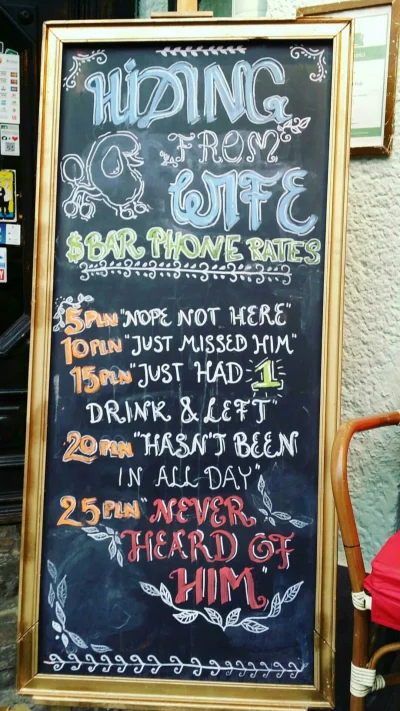 HIDING
FROM
WIFE
$ BAR PHONE RATES
5 PLN "NOPE NOT HERE"
10 PLN "JUST MISSED HIM"
15 PLN "JUST HAD 1
DRINK & LEFT"
20 PLN "HASN'T BEEN
IN ALL DAY"
25 PLN "NEVER
HEARD OF
HIM"